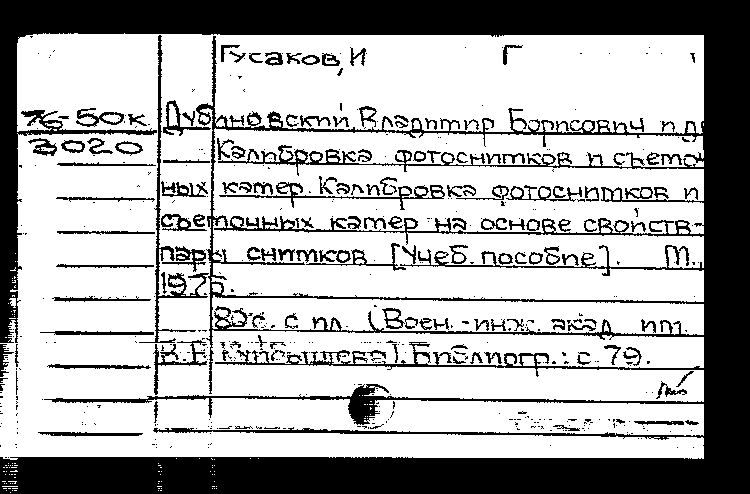 Гусаков, И Г
76-50к
3020
Дубиновский, Владимир Борисович и др
Калибровка фотоснимков и съемоч
ных камер. Калибровка фотоснимков и
съемочных камер на основе свойств-
пары снимков [Учеб. пособие]. М.,
1975.
80 с. с ил. (Воен.-инж. акад им.
В. В Куйбышева). Библиогр.: с 79.